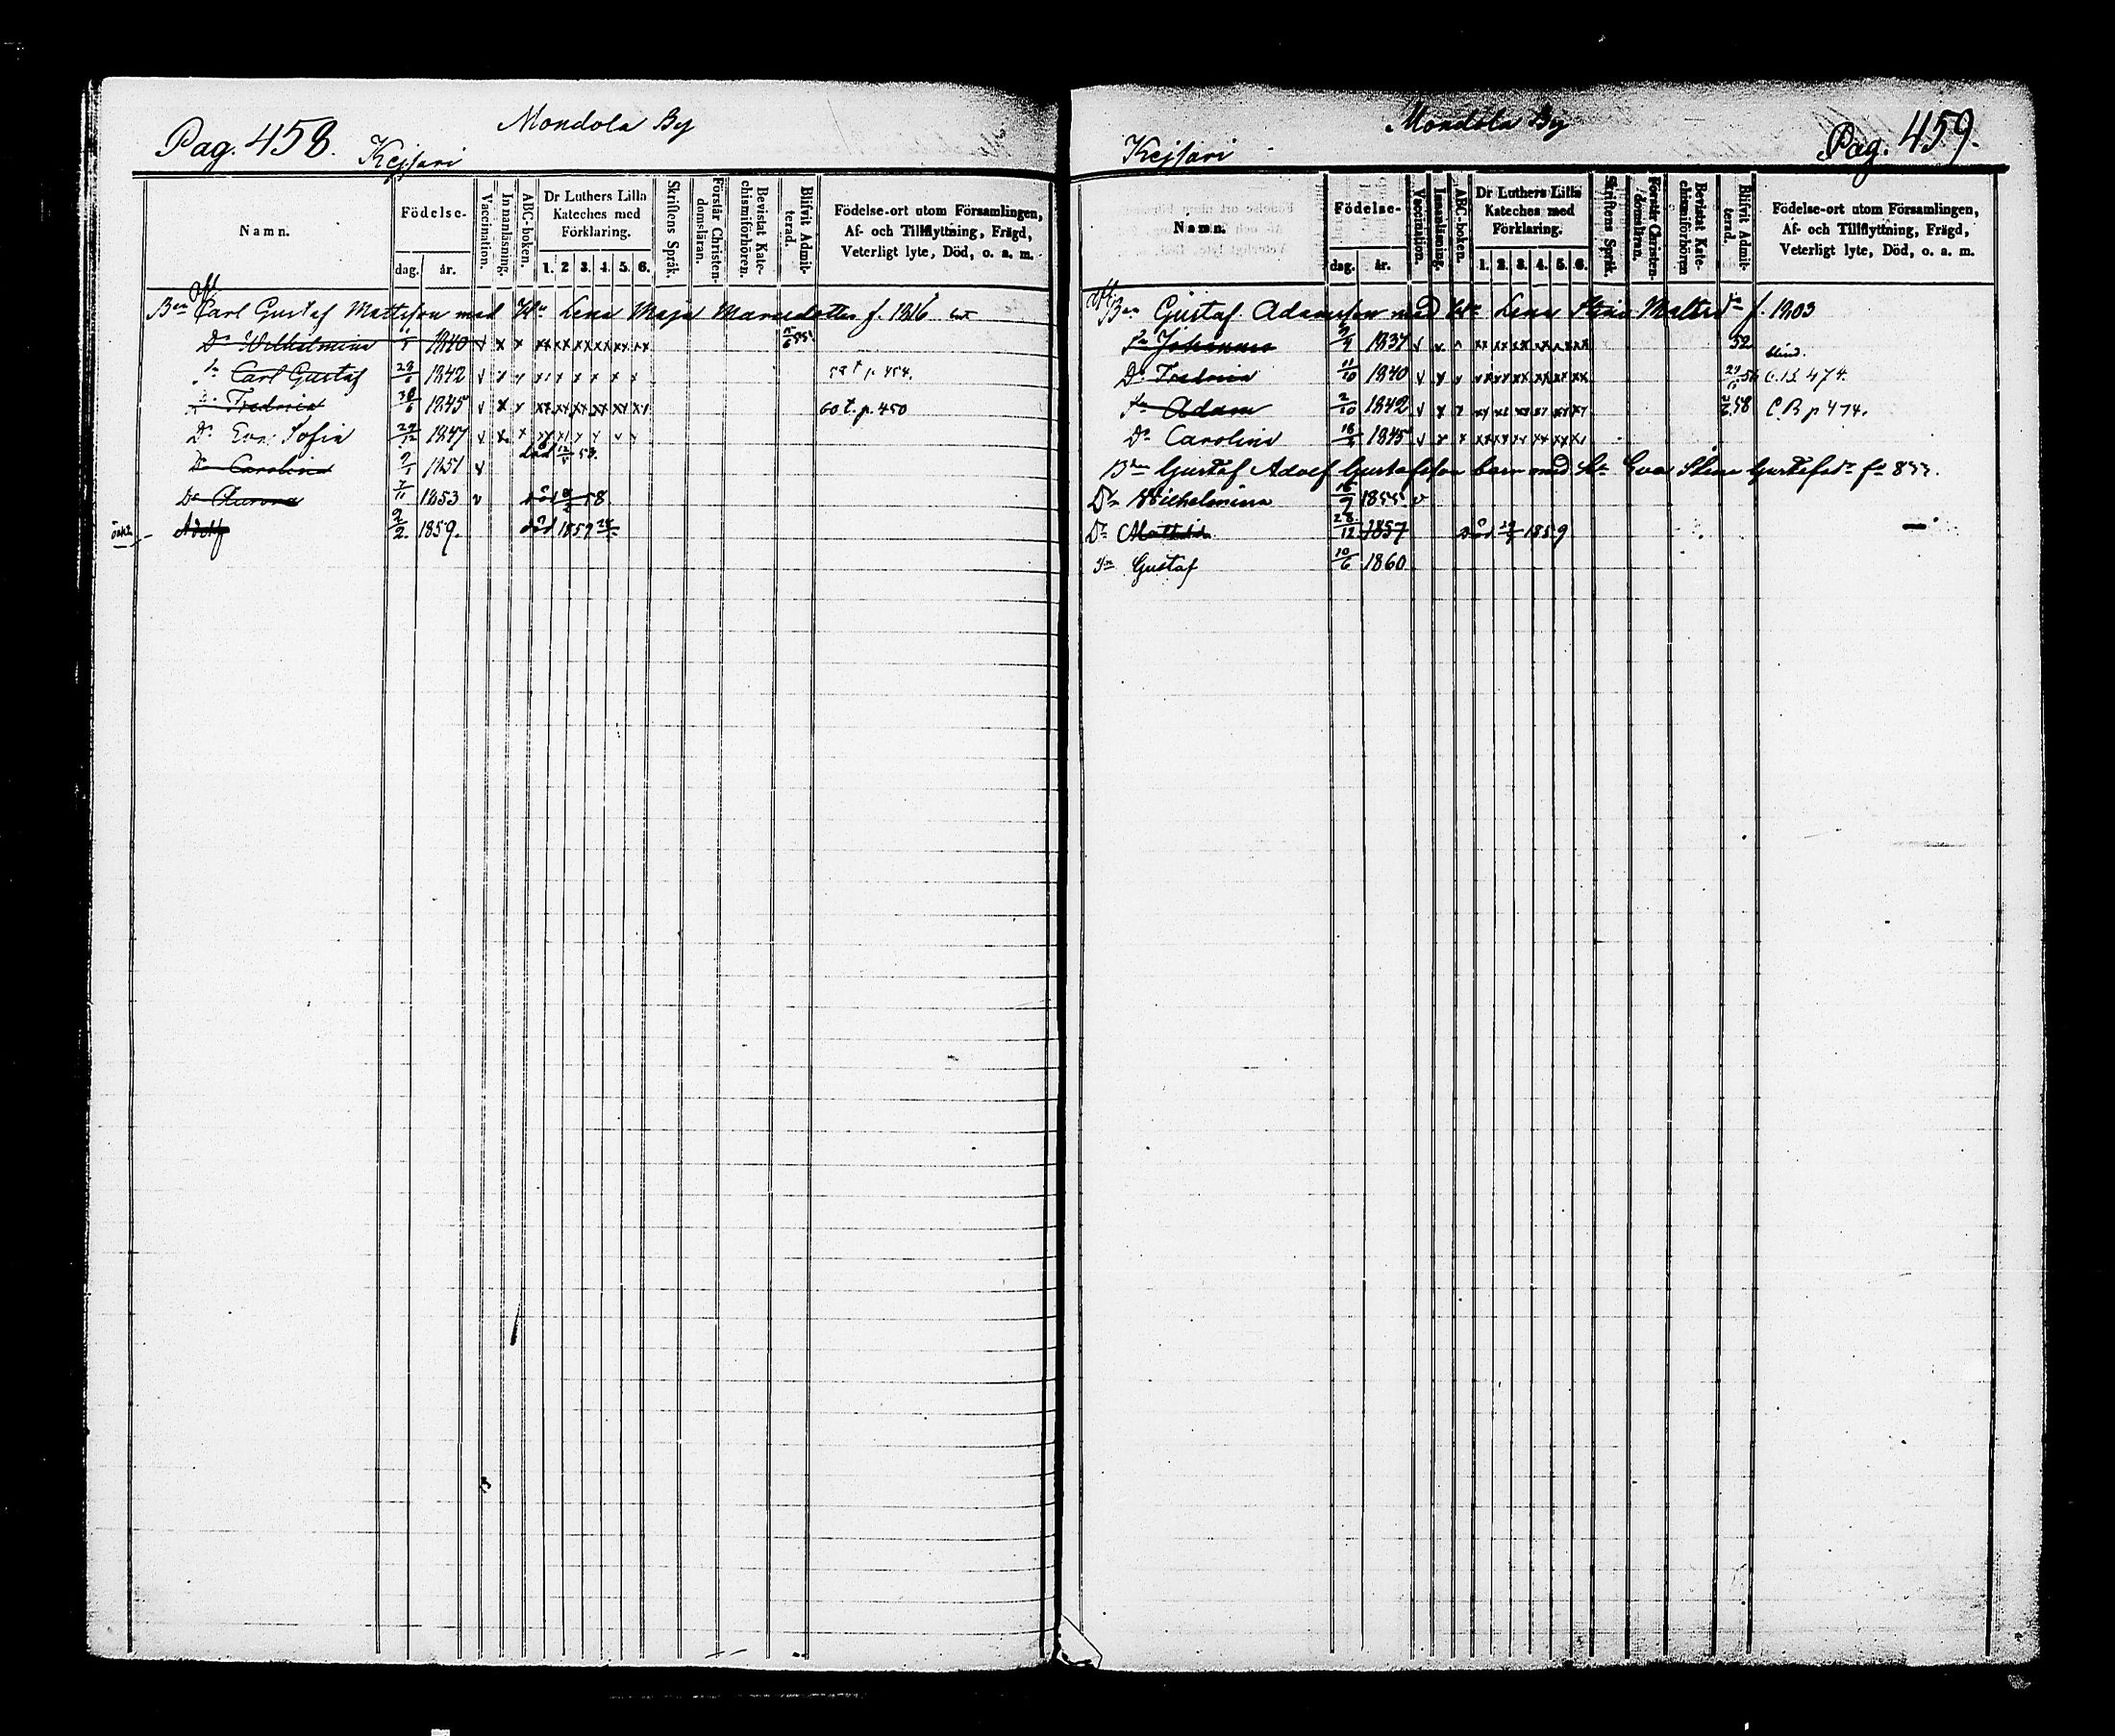 Pag. 458.
Mondola By
Kejsari
Namn.
Födelse-
dag.
år.
Vaccination.
Innanläsning.
ABC-boken.
Dr Luthers Lilla
Kateches med
Förklaring.
1. 2 3. 4. 5. 6.
Skriftens Språk.
Förstår Christen-
domsläran.
Bevistat Kate-
chismiförhören.
Blifvit Admit-
terad.
Födelse-ort utom Församlingen,
Af- och Tillflyttning, Frägd,
Veterligt lyte, Död, o. a. m.
Bon Carl Gustaf Mattsson med Hu Lena Maja f. 1816
Dr Wilhelmina 1840 v x x xx xx xx xx xx xx
Sn Carl Gustaf 1842 v x x x x x x x 58 t p. 454.
Dr Fredrica 30/6 1845 v x x xx xx xx xx xx xx 60 t. p. 450
Dr Eva Sofia 29/12 1847 v x x
Dr Carolina 1851 v död 53.
Dr Aurora 7/11 1853 v död 58
Adolf 2/2. 1859. död 1859
Mondola By
Pag. 459.
Kejsari
Namn.
Födelse-
dag.
år.
Vaccination.
Innanläsning.
ABC-boken.
Dr Luthers Lilla
Kateches med
Förklaring.
1. 2. 3. 4. 5. 6.
Skriftens Språk.
Förstår Christen-
domsläran.
Bevistat Kate-
chismiförhören
Blifvit Admit-
terad.
Födelse-ort utom Församlingen,
Af- och Tillflyttning, Frägd,
Veterligt lyte, Död, o. a. m.
Bn Gustaf Adamsson med Hu Lena Stina Mattsdr f. 1803
Sn Johannes 1837 v 52
blind.
Dr Fredrica 11/10 1840 v 56 C.B. 474.
Sn Adam 2/10 1842 v 58 C B p 474.
Dr Carolina 1845 v
Bn Gustaf Adolf Gustafsson barn med Hu Eva Stina Gustafsdr
Dr Wilhelmina 1855 v
Dr Mathilda 28/12 1857 död 1859
Sn Gustaf 10/6 1860